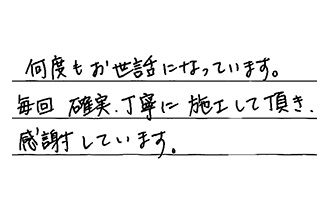 何度もお世話になっています。
毎回 確実、丁寧に施工して頂き、
感謝しています。